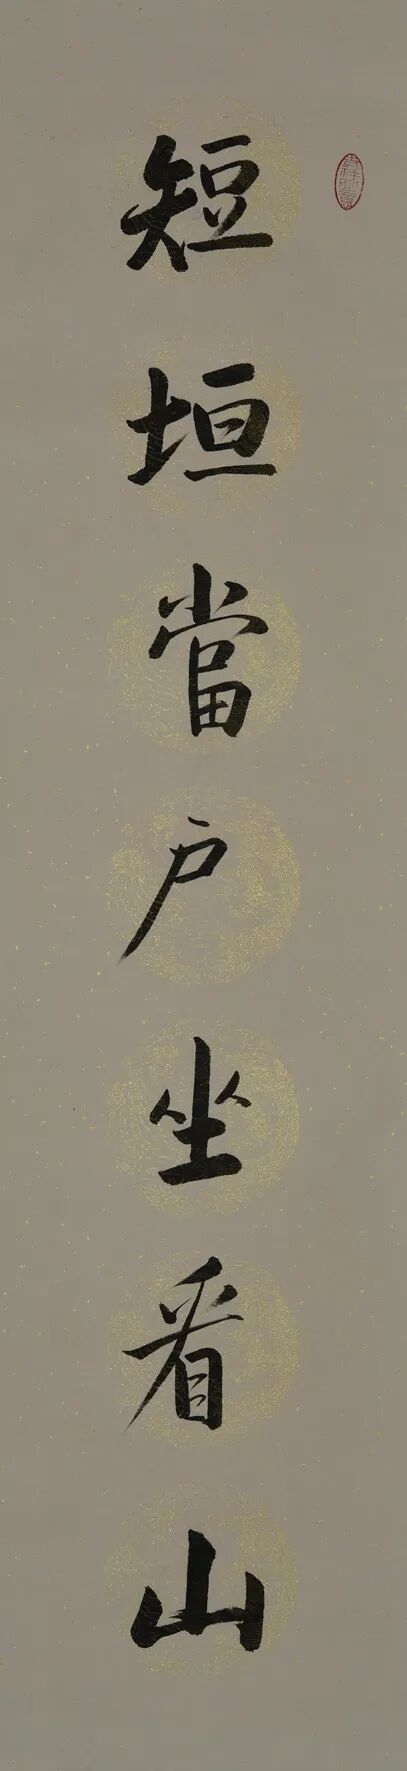 短垣當户坐看山